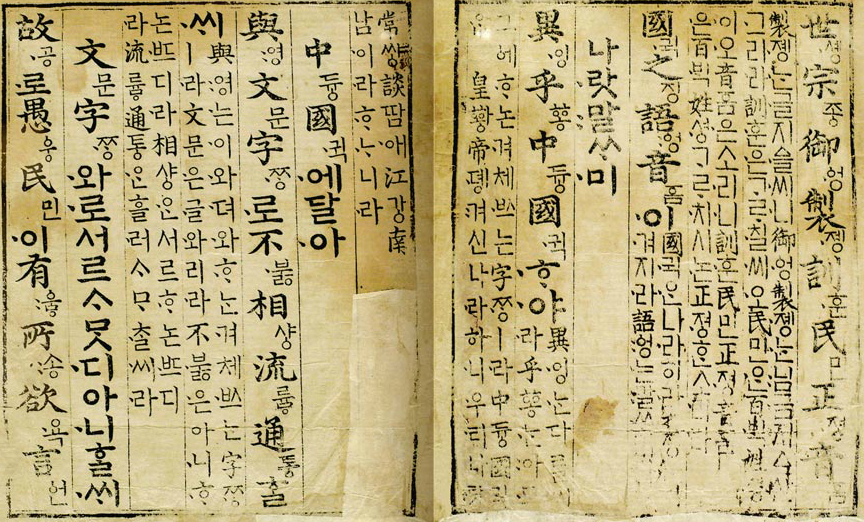 世솅宗종御엉製졩訓훈民민正졍音음
製졩는글지ᅀᅳᆯ씨니御엉製졩는님금지ᅀᅳ샨
그리라訓훈은ᄀᆞᄅᆞ칠씨오民민ᄋᆞᆫ百ᄇᆡᆨ姓셩
이오音음은소리니訓훈民민正졍音음
은百ᄇᆡᆨ姓셩ᄀᆞᄅᆞ치시논正졍ᄒᆞᆫ소리라
國귁之징語ᅌᅥᆼ音음이
國귁ᄋᆞᆫ나라히라
겨지라語ᅌᅥᆼ는말ᄊᆞ미라
나랏말ᄊᆞ미
異잉乎ᅘᅩᆼ中듕國귁ᄒᆞ야
異잉는다ᄅᆞᆯ씨
라乎ᅘᅩᆼ는아모
그ᅌᅦᄒᆞ논겨체ᄡᅳ는字ᄍᆞᆼㅣ라中듕國귁
皇ᅘᅪᆼ帝뎽겨신나라히니우리나랏
常썅談땀애江강南
남이라ᄒᆞᄂᆞ니라
中듕國귁에달아
與영文문字ᄍᆞᆼ로不붏相샹流륳通통ᄒᆞᆯ
ᄊᆡ
與영는이와뎌와ᄒᆞ는겨체ᄡᅳ는字ᄍᆞᆼ
ㅣ라文문은글와리라不붏은아니ᄒᆞ
논ᄠᅳ디라相샹ᄋᆞᆫ서르ᄒᆞ논ᄠᅳ디
라流륳通통ᄋᆞᆫ흘러ᄉᆞᄆᆞᄎᆞᆯ씨라
文문字ᄍᆞᆼ와로서르ᄉᆞᄆᆞᆺ디아니ᄒᆞᆯᄊᆡ
故공로愚ᅌᅮᆼ民민이有ᅌᅮᇢ所송欲욕言ᅌᅥᆫ